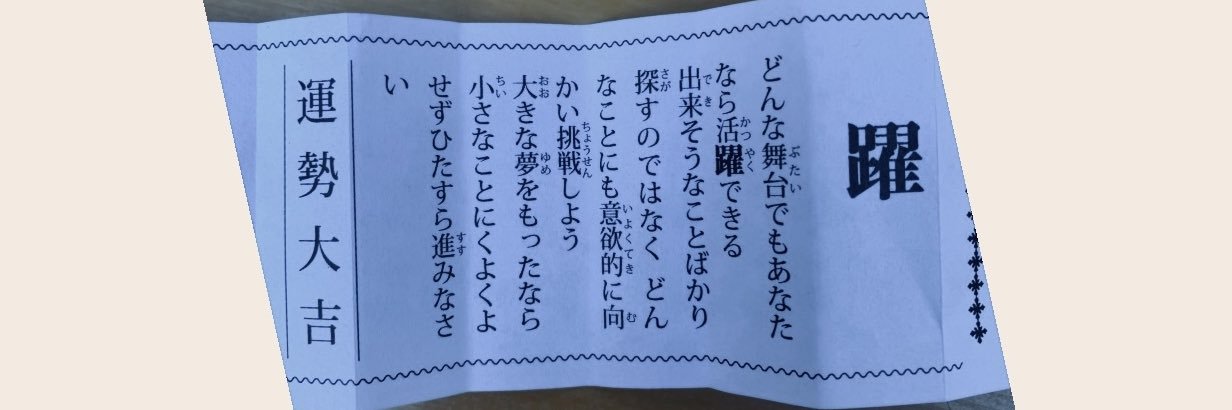 躍
どんな舞台でもあなた
なら活躍できる
出来そうなことばかり
探すのではなく どん
なことにも意欲的に向
かい挑戦しよう
大きな夢をもったなら
小さなことにくよくよ
せずひたすら進みなさ
い
運勢大吉